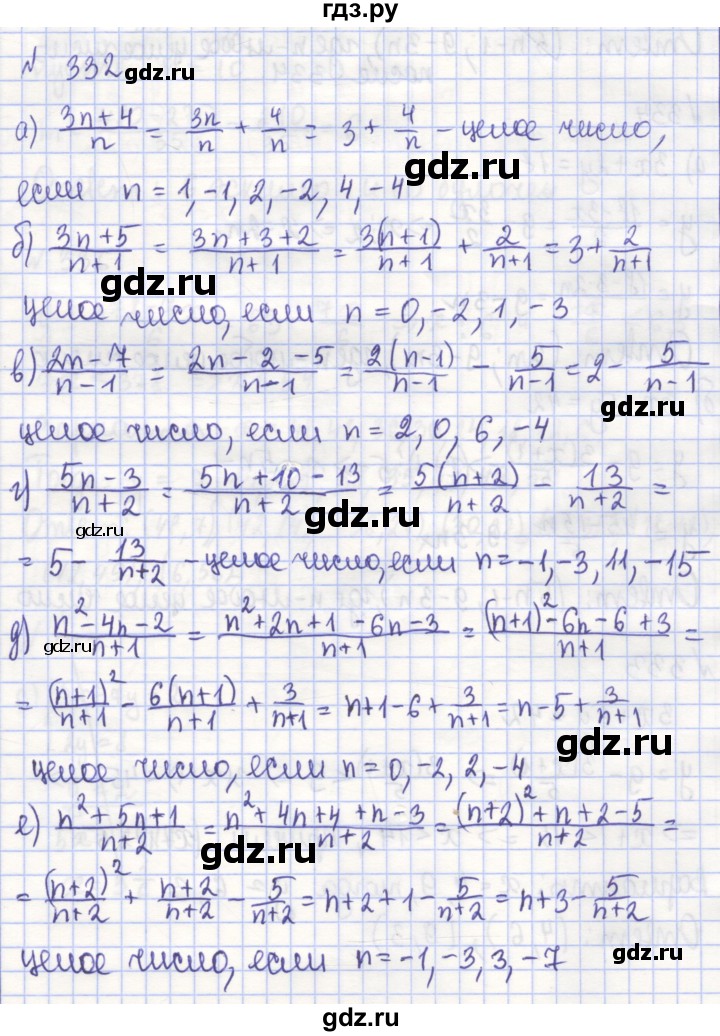 гдз.ру
№ 332
gdz.ru
а) (3n+4)/n = 3n/n + 4/n = 3 + 4/n - целое число,
gdz.ru
если n = 1, -1, 2, -2, 4, -4
б) (3n+5)/(n+1) = (3n+3+2)/(n+1) = 3(n+1)/(n+1) + 2/(n+1) = 3 + 2/(n+1)
целое число, если n = 0, -2, 1, -3
в) (2n-7)/(n-1) = (2n-2-5)/(n-1) = 2(n-1)/(n-1) - 5/(n-1) = 2 - 5/(n-1)
gdz.ru
целое число, если n = 2, 0, 6, -4
г) (5n-3)/(n+2) = (5n+10-13)/(n+2) = 5(n+2)/(n+2) - 13/(n+2) =
gdz.ru
gdz.ru
= 5 - 13/(n+2) - целое число, если n = -1, -3, 11, -15
д) (n²-4n-2)/(n+1) = (n²+2n+1-6n-3)/(n+1) = ((n+1)²-6n-6+3)/(n+1) =
gdz.ru
= (n+1)²/(n+1) - 6(n+1)/(n+1) + 3/(n+1) = n+1-6 + 3/(n+1) = n-5 + 3/(n+1)
gdz.ru
целое число, если n = 0, -2, 2, -4
е) (n²+5n+1)/(n+2) = (n²+4n+4+n-3)/(n+2) = ((n+2)²+n+2-5)/(n+2) =
gdz.ru
= (n+2)²/(n+2) + (n+2)/(n+2) - 5/(n+2) = n+2+1 - 5/(n+2) = n+3 - 5/(n+2)
целое число, если n = -1, -3, 3, -7
gdz.ru